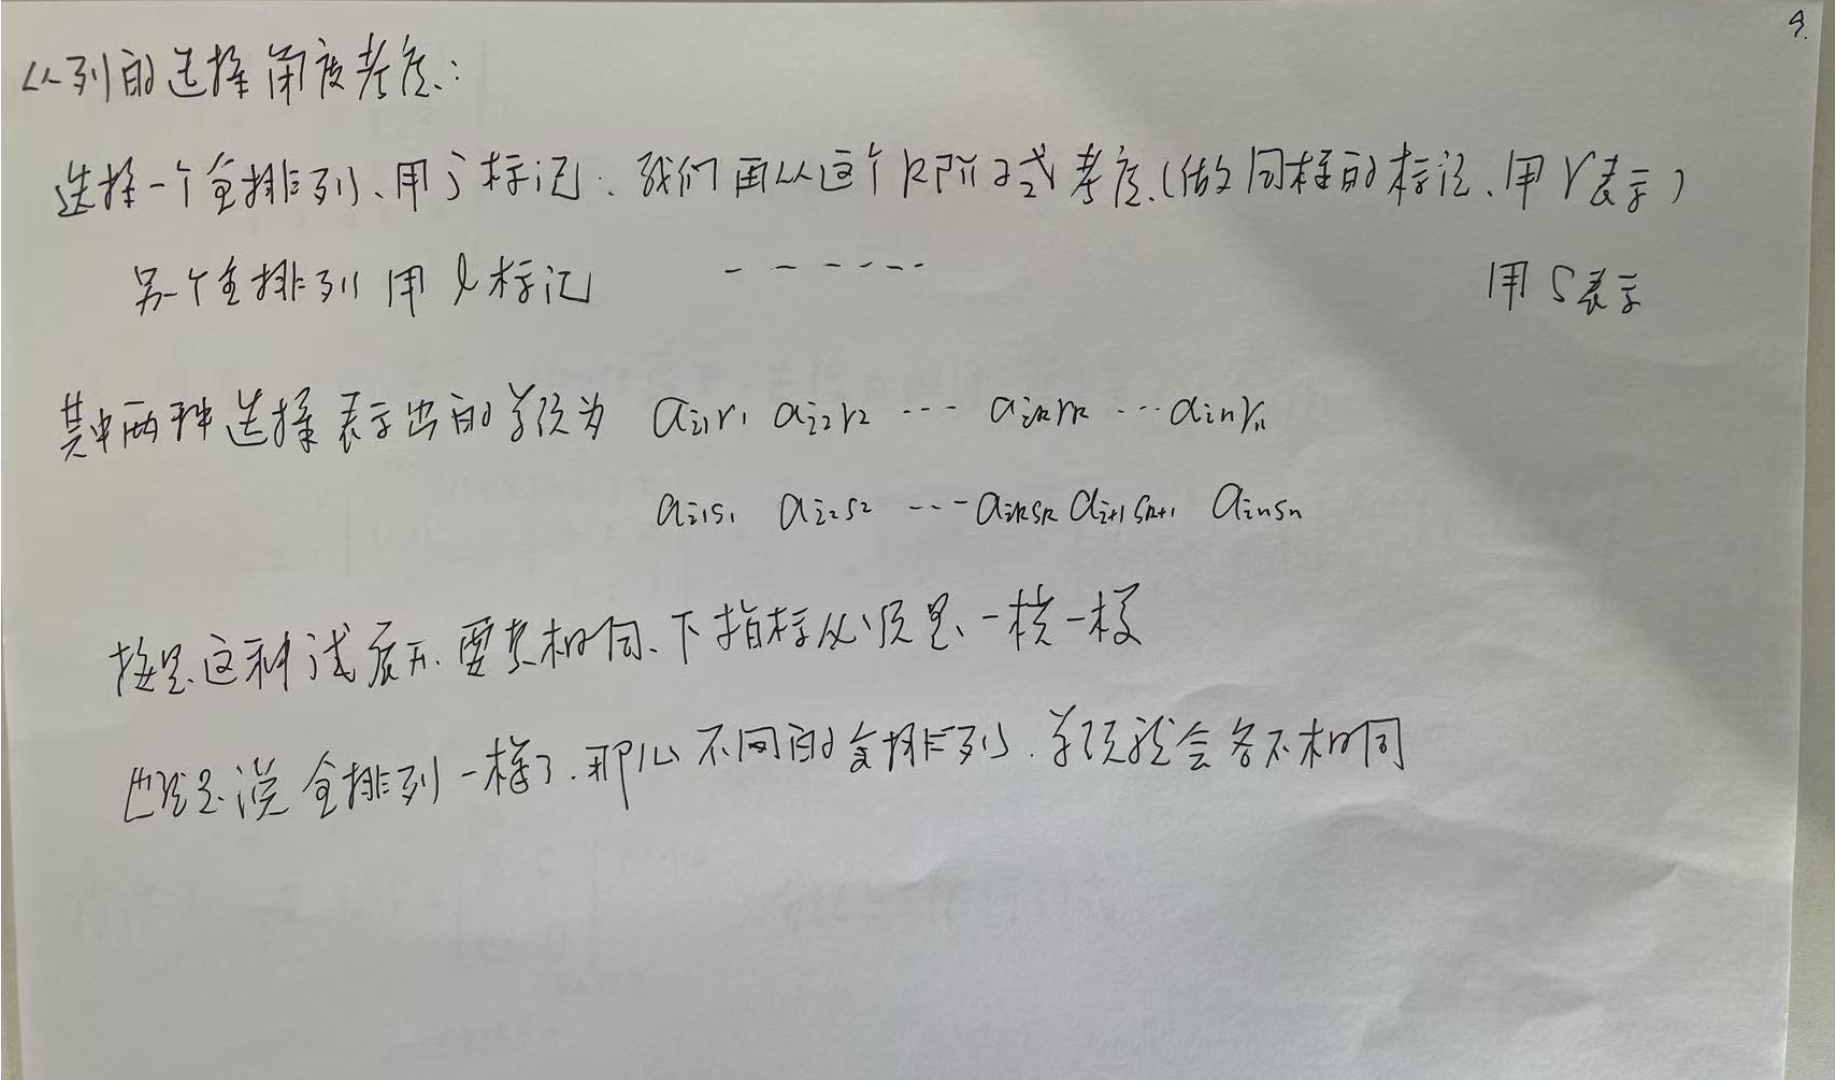 9.
从列的选择角度考虑:
选择一个全排列、用j标记. 我们再从这个k阶子式考虑.(做同样的标记、用r表示)
另一个全排列用l标记 ------ 用s表示
其中两种选择表示出的单项为 ai1r1 ai2r2 … aikrk …ainrn
ai1s1 ai2s2 …aiksk ai+1sk+1 ainsn
按照这种式展开.要素相同.下指标必须是一模一样
也就是说全排列一样了.那么不同的全排列.单项就会各不相同